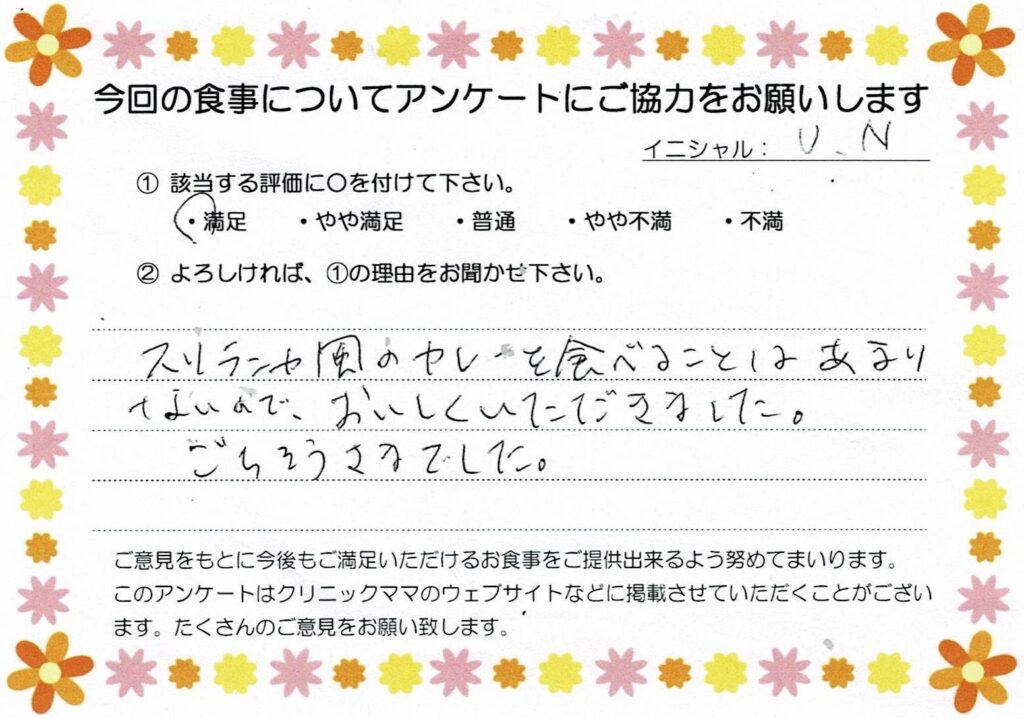 今回の食事についてアンケートにご協力をお願いします
イニシャル： U.N
① 該当する評価に〇を付けて下さい。
・満足 ・やや満足 ・普通 ・やや不満 ・不満
② よろしければ、①の理由をお聞かせ下さい。
スリランカ風のカレーを食べることはあまり
ないので、おいしくいただきました。
ごちそうさまでした。
ご意見をもとに今後もご満足いただけるお食事をご提供出来るよう努めてまいります。
このアンケートはクリニックママのウェブサイトなどに掲載させていただくことがござい
ます。たくさんのご意見をお願い致します。